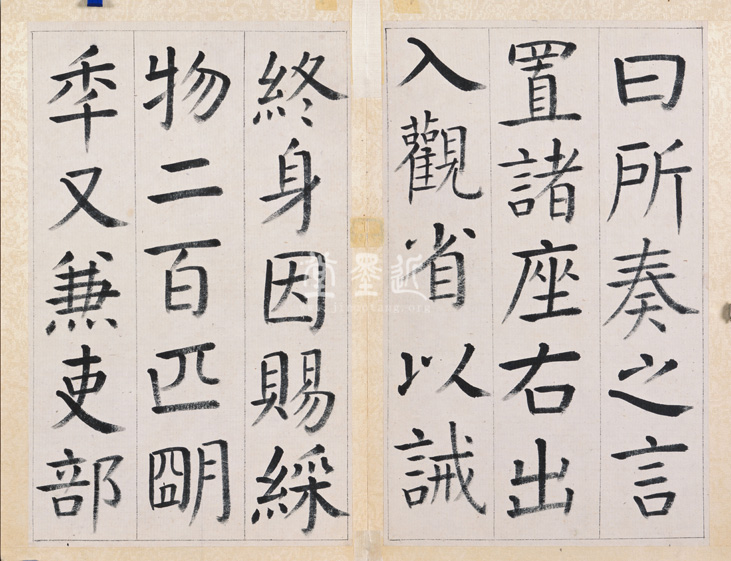 曰所奏之言
置諸座右出
入觀省以誡
終身因賜綵
物二百匹朙
秊又兼吏部